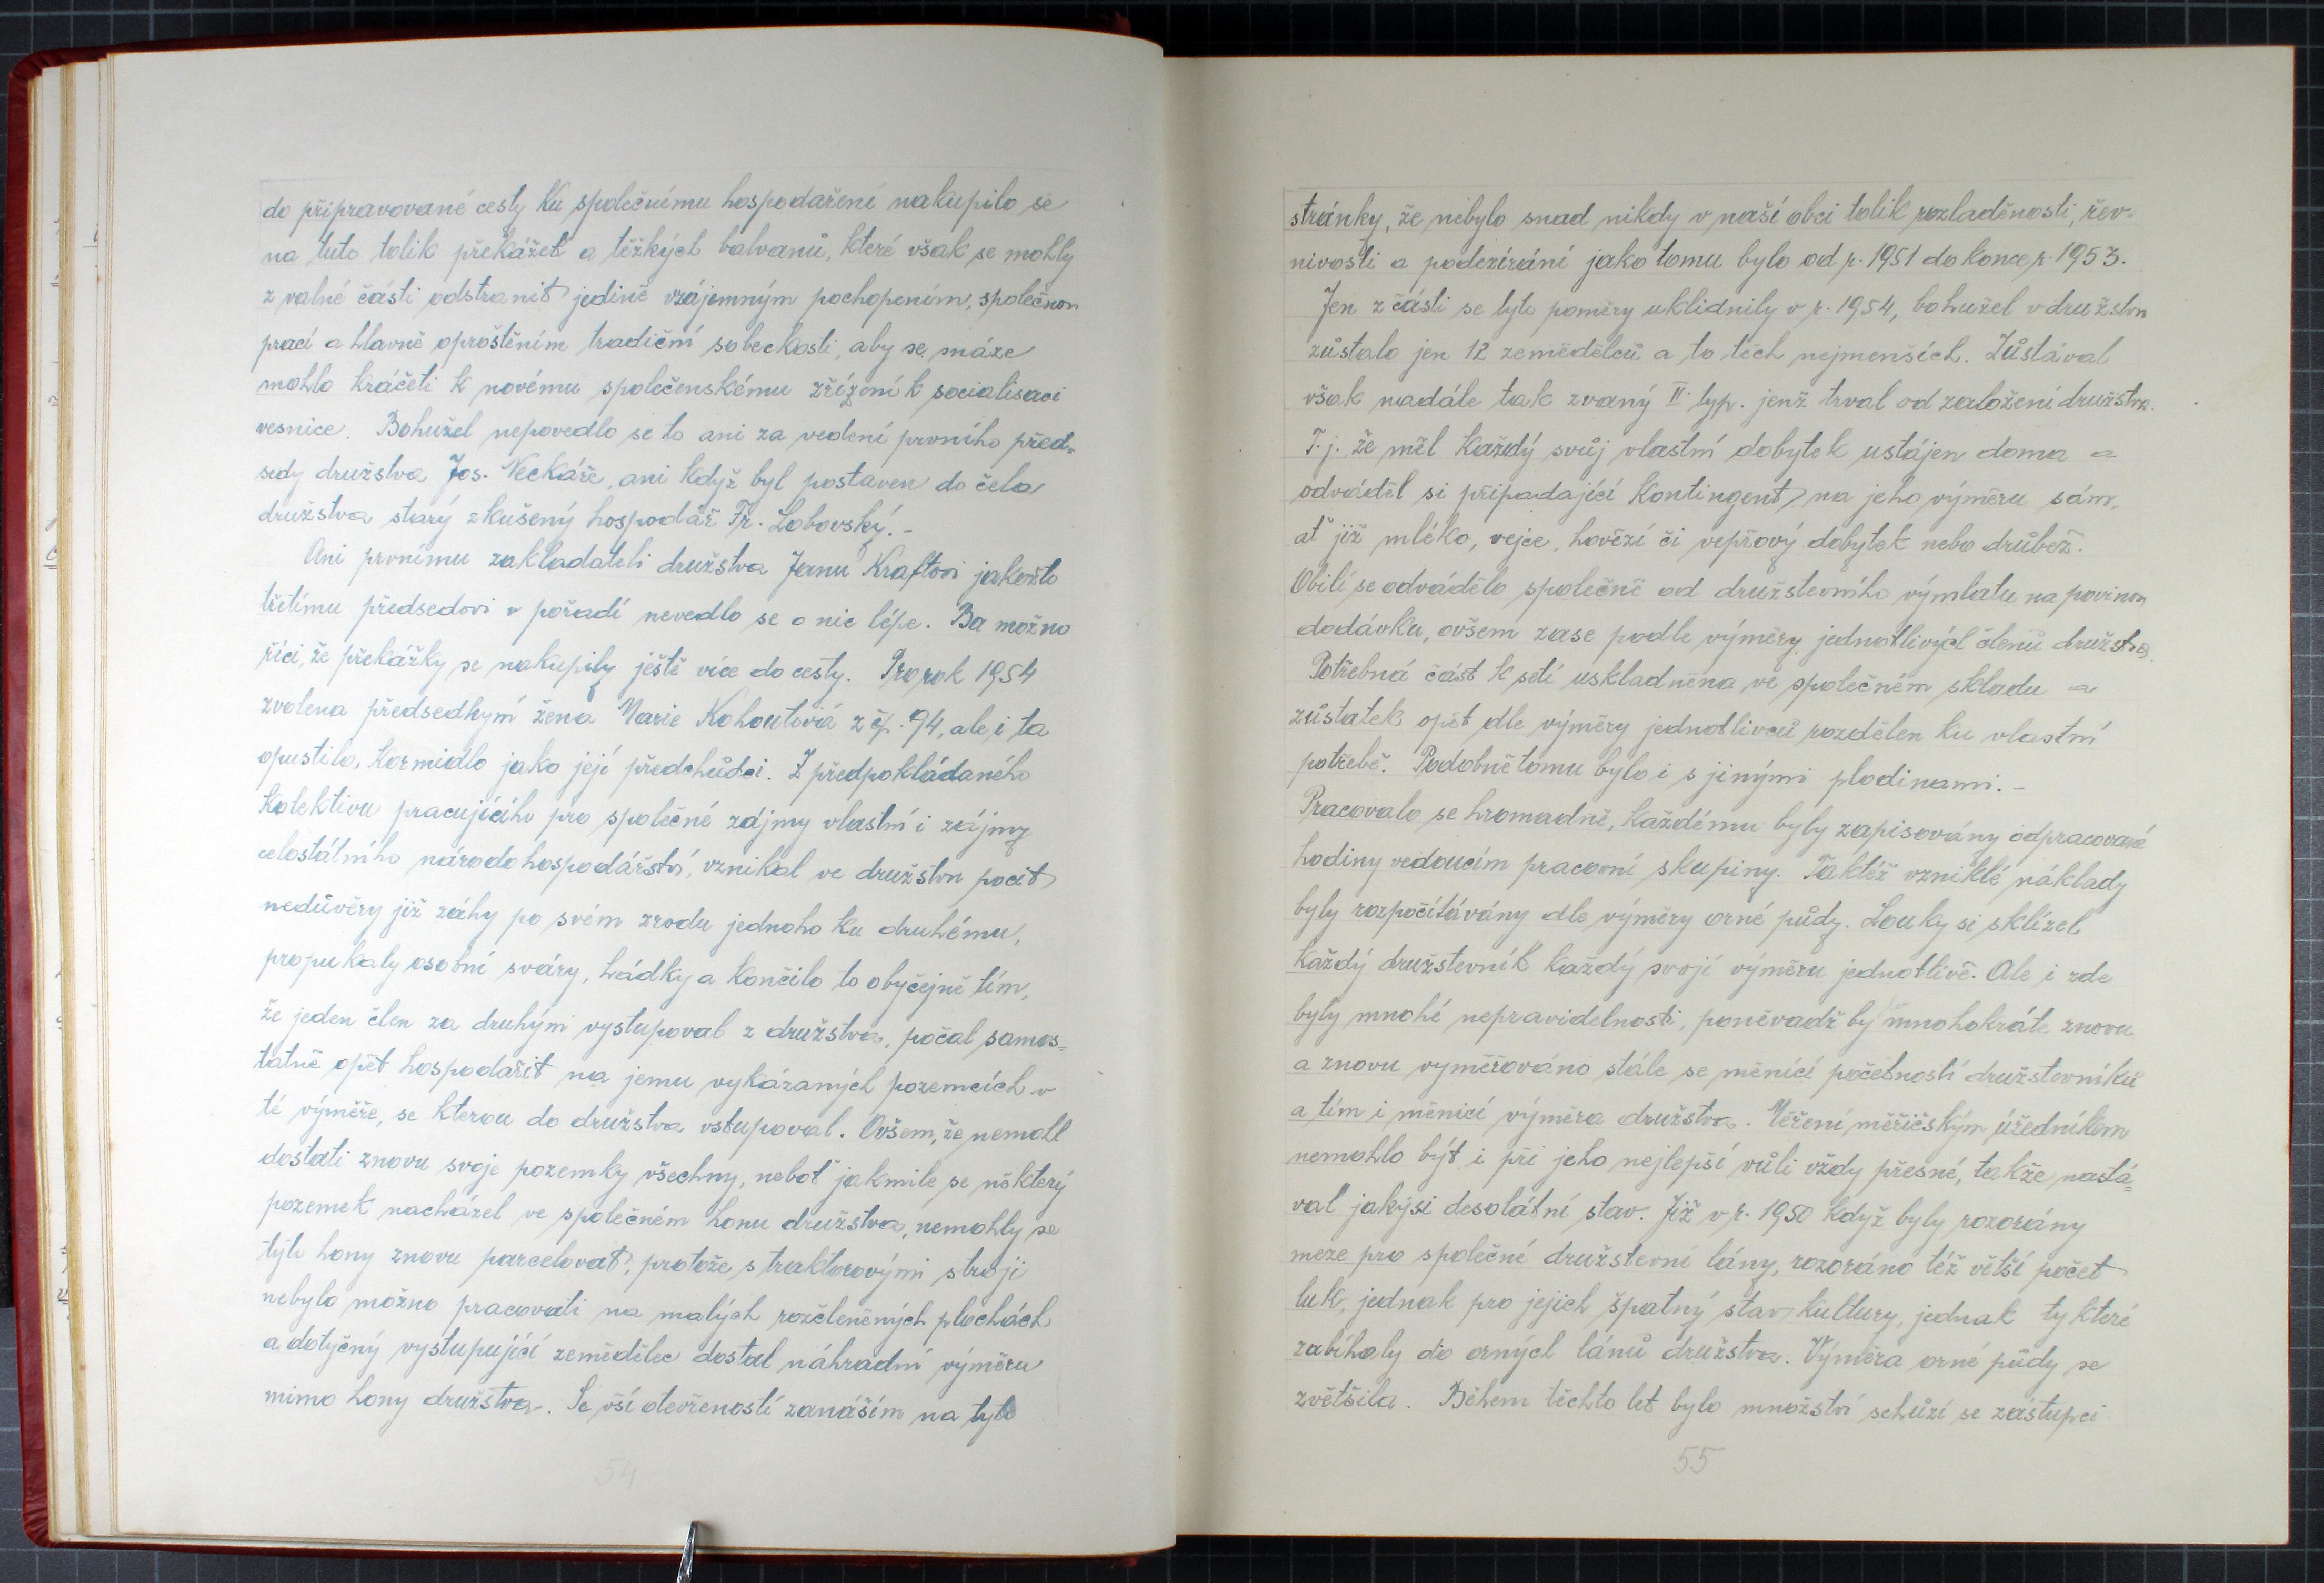 do připravované cesty ku společnému hospodaření nakupilo se
na tuto tolik překážek a těžkých balvanů, které však se mohly
z valné části odstranit jedině vzájemným pochopením, společnou
prací a hlavně oproštěním tradiční sobeckosti, aby se snáze
mohlo kráčeti k novému společenskému zřízení k socialisaci
vesnice. Bohužel nepovedlo se to ani za vedení prvního před-
sedy družstva Jos. Neckáře, ani když byl postaven do čela
družstva starý zkušený hospodář Fr. Lobovský. –
Ani prvnímu zakladateli družstva Janu Kraftovi jakožto
třetímu předsedovi v pořadí nevedlo se o nic lépe. Ba možno
říci, že překážky se nakupily ještě více do cesty. Pro rok 1954
zvolena předsedkyní žena Marie Kohoutová z čp. 94, ale i ta
opustila kormidlo jako její předchůdci. Z předpokládaného
kolektivu pracujícího pro společné zájmy vlastní i zájmy
celostátního národohospodářství, vznikal ve družstvu pocit
nedůvěry již záhy po svém zrodu jednoho ku druhému,
propukaly osobní sváry, hádky a končilo to obyčejně tím,
že jeden člen za druhým vystupoval z družstva, počal samos=
tatně opět hospodařit na jemu vykázaných pozemcích v
té výměře, se kterou do družstva vstupoval. Ovšem, že nemohl
dostati znovu svoje pozemky všechny, neboť jakmile se některý
pozemek nacházel ve společném honu družstva, nemohly se
tyto hony znovu parcelovat, protože s traktorovými stroji
nebylo možno pracovati na malých rozčleněných plochách
a dotyčný vystupující zemědělec dostal náhradní výměru
mimo hony družstva. Se vší otevřeností zanáším na tyto
54
stránky, že nebylo snad nikdy v naší obci tolik rozladěnosti, řev-
nivosti a podezírání jako tomu bylo od r. 1951 do konce r. 1953.
Jen z části se tyto poměry uklidnily v r. 1954, bohužel v družstvu
zůstalo jen 12 zemědělců a to těch nejmenších. Zůstával
však nadále tak zvaný II. typ. jenž trval od založení družstva.
T.j. že měl každý svůj vlastní dobytek ustájen doma a
odváděl si připadající kontingent na jeho výměru sám,
ať již mléko, vejce, hovězí či vepřový dobytek nebo drůbež.
Obilí se odvádělo společně od družstevního výmlatu na povinou
dodávku, ovšem zase podle výměry jednotlivých členů družstva
Potřebná část k setí uskladněna ve společném skladu a
zůstatek opět dle výměry jednotlivců rozdělen ku vlastní
potřebě. Podobně tomu bylo i s jinými plodinami. –
Pracovalo se hromadně, každému byly zapisovány odpracované
hodiny vedoucím pracovní skupiny. Taktéž vzniklé náklady
byly rozpočítávány dle výměry orné půdy. Louky si sklízel
každý družstevník každý svojí výměru jednotlivě. Ale i zde
byly mnohé nepravidelnosti, poněvadž by mnohokráte znovu
a znovu vyměřováno stále se měnící početností družstevníků
a tím i měnící výměra družstva. Měření měřičským úředníkem
nemohlo být i při jeho nejlepší vůli vždy přesné, takže nastá=
val jakýsi desolátní stav. Již v r. 1950 když byly rozorány
meze pro společné družstevní lány, rozoráno též větší počet
luk, jednak pro jejich špatný stav kultury, jednak ty které
zabíhaly do orných lánů družstva. Výměra orné půdy se
zvětšila. Během těchto let bylo množství schůzí se zástupci
55